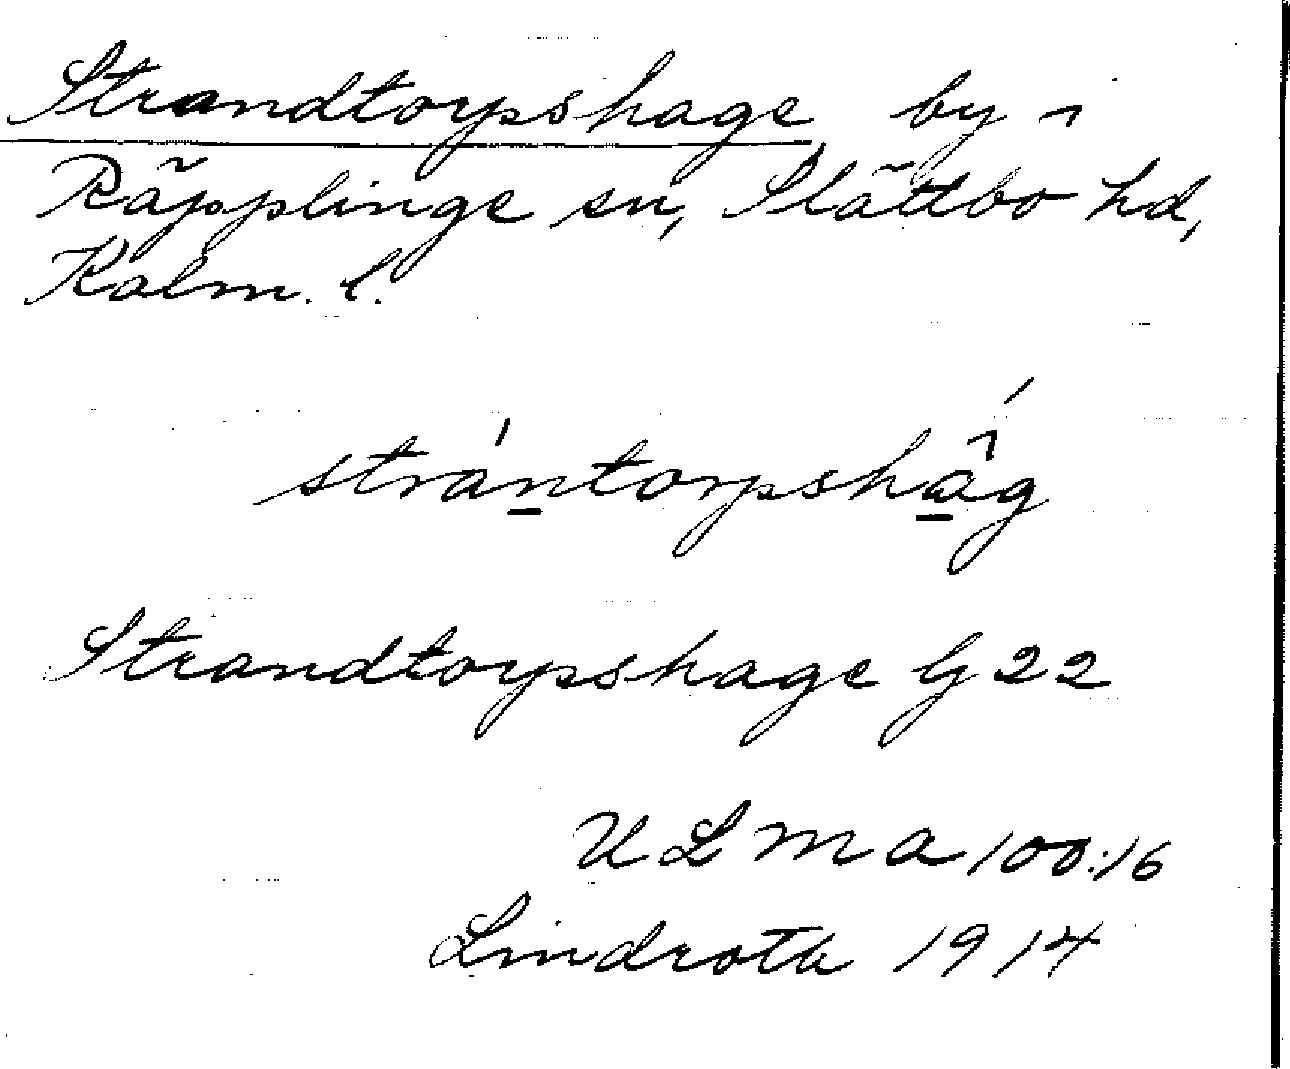 Strandtorpshage by i
Räpplinge sn, Slättbo hd,
Kalm. l.
strántorpshåg
Strandtorpshage G 22
ULMA 100:16
Lindroth 1914